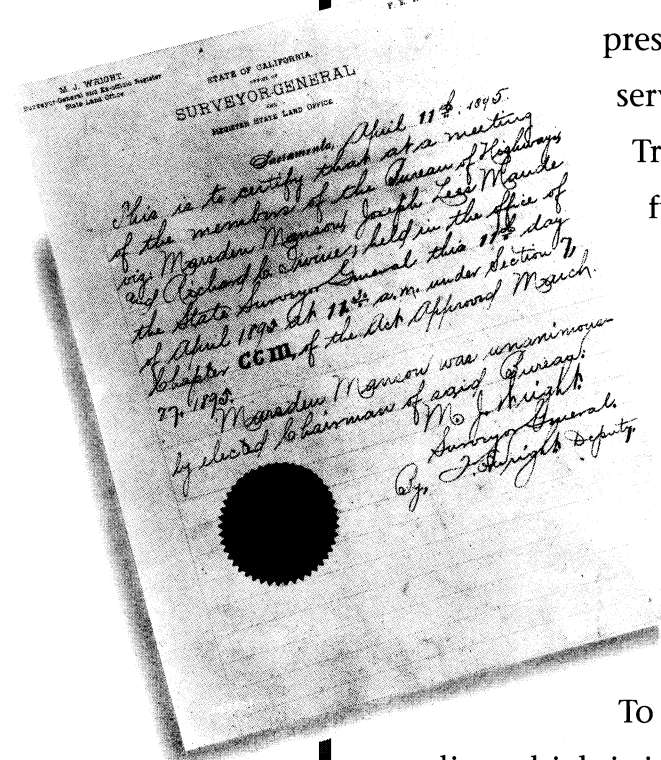 M. J. WRIGHT,
Surveyor-General and Ex-officio Register
State Land Office
STATE OF CALIFORNIA,
OFFICE OF
SURVEYOR-GENERAL
AND
REGISTER STATE LAND OFFICE
Sacramento, April 11th. 1895.
This is to certify that at a meeting
of the members of the Bureau of Highways,
viz: Marsden Manson, Joseph Lees Maude
and Richard C. Irvine, held in the office of
the State Surveyor General this 11th day
of April 1895 at 11 a.m. under Section 7,
Chapter CCIII, of the Act Approved March.
27, 1895.
Marsden Manson was unanimous-
ly elected Chairman of said Bureau.
M. J. Wright.
Surveyor General.
By, Wright Deputy.
pres
serv
Tr
f
To